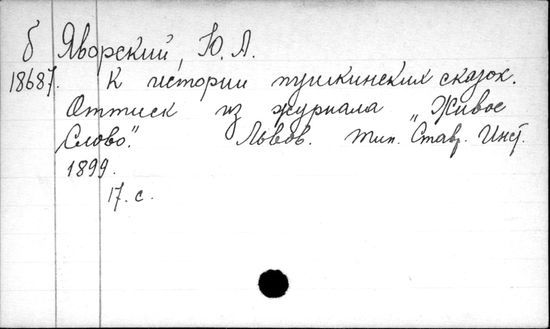 б Яворский, Ю. А.
18687. К истории пушкинских сказок.
Оттиск из журнала "Живое
Слово." Львов. тип. Ставр. Инст.
1899.
17. с.